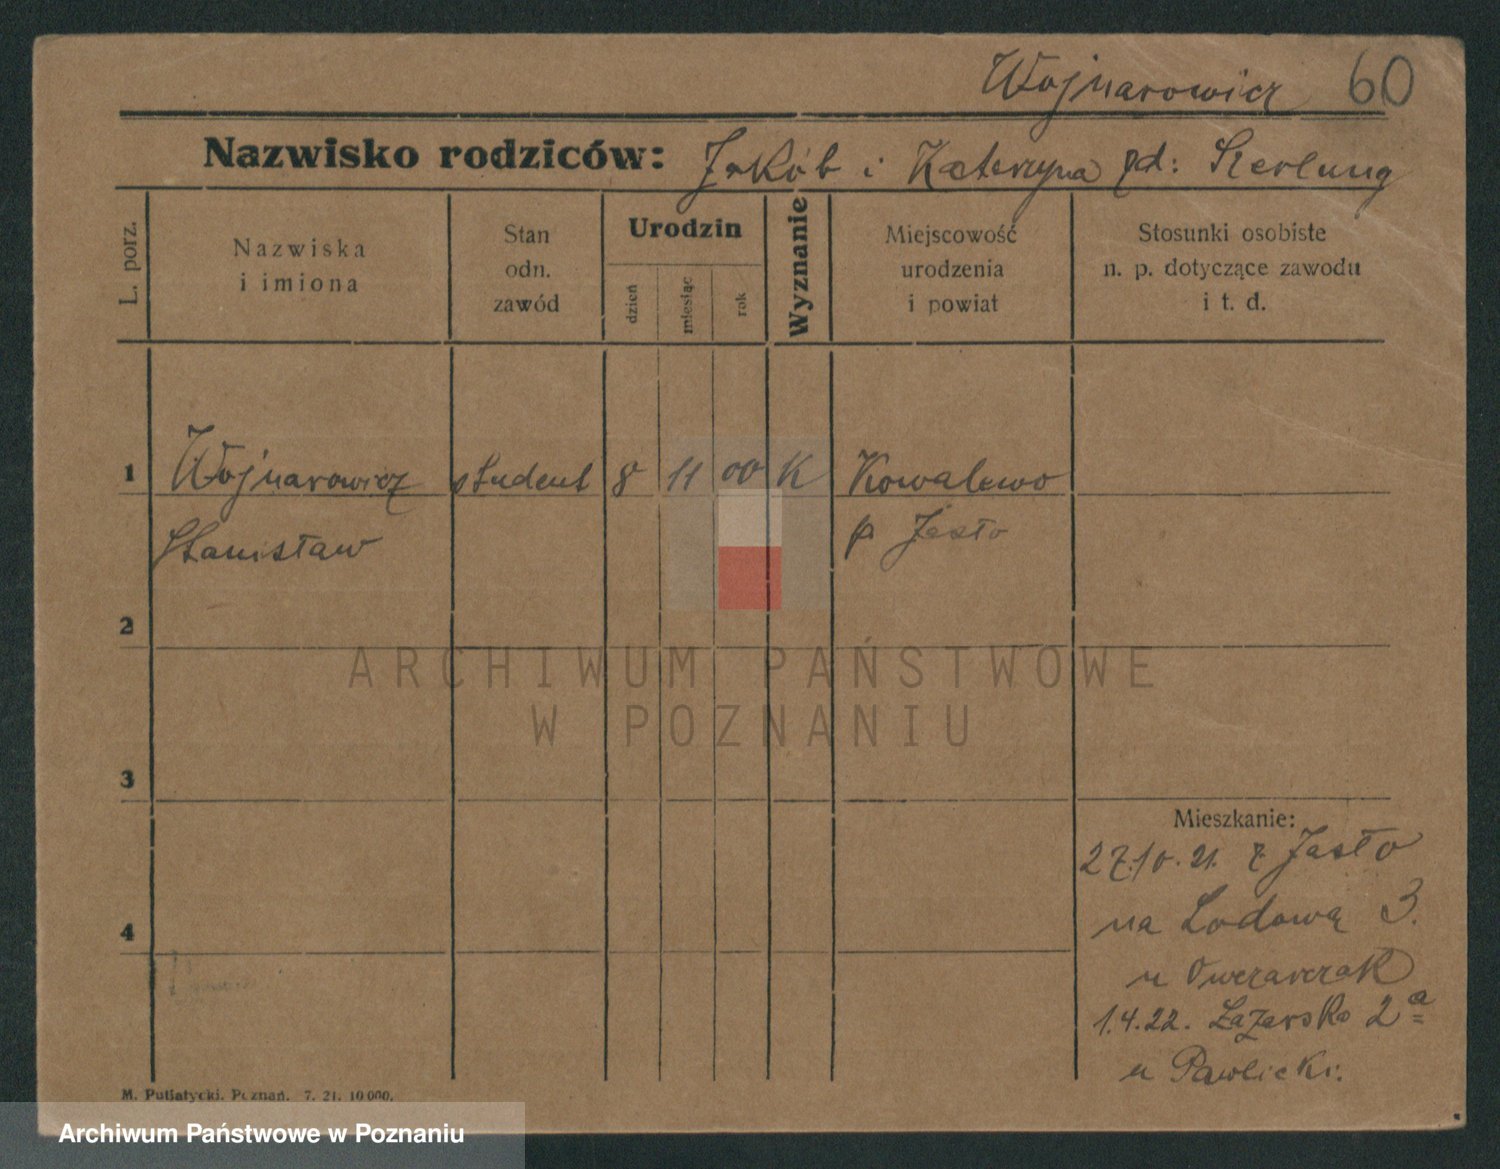 Wojnarowicz 60
Nazwisko rodziców: Jakób i Katarzyna zd: Szerlung
L. porz.
Nazwiska
i imiona
Stan
odn.
zawód
Urodzin
dzień
miesiąc
rok
Wyznanie
Miejscowość
urodzenia
i powiat
Stosunki osobiste
n. p. dotyczące zawodu
i t. d.
1 Wojnarowicz student 8 11 00 K Kowalewo
Stanisław p. Jasło
2
ARCHIWUM PAŃSTWOWE
W POZNANIU
3
Mieszkanie:
27.10.21. z Jasło
na Lodową 3.
4
u Owczarczak
1.4.22. Łazarska 2a
u Pawlicki.
M. Putiatycki, Poznań. 7. 21. 10 000.
Archiwum Państwowe w Poznaniu